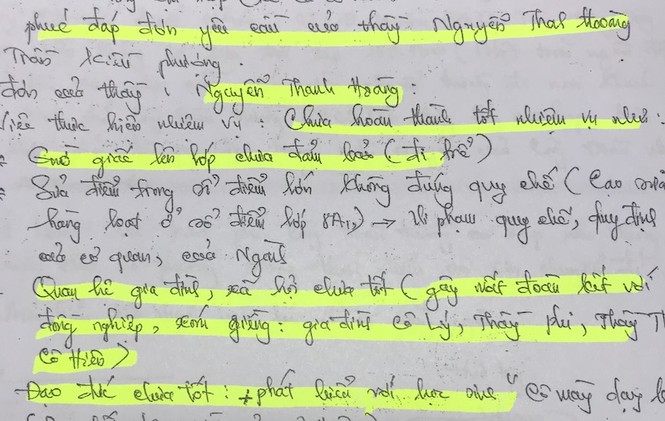 phúc đáp đơn yêu cầu của thầy Nguyễn Thah Hoàng
Trần Kiều Phượng.
đơn của thầy: Nguyễn Thanh Hoàng.
Việc thực hiện nhiệm vụ: Chưa hoàn thành tốt nhiệm vụ như:
- Giờ giấc lên lớp chưa đảm bảo (đi trễ)
- Sửa điểm trong sổ điểm lớn không đúng quy chế (Cạo sửa
hàng loạt ở sổ điểm lớp 8A12) → Vi phạm quy chế, quy định
của cơ quan, của Ngành
- Quan hệ gia đình, xã hội chưa tốt (gây mất đoàn kết với
đồng nghiệp, xóm giềng: gia đình cô Lý, Thầy Phi, Thầy
Cô Hiền)
- Đạo đức chưa tốt: + phát biểu với học sinh "Cô mày dạy